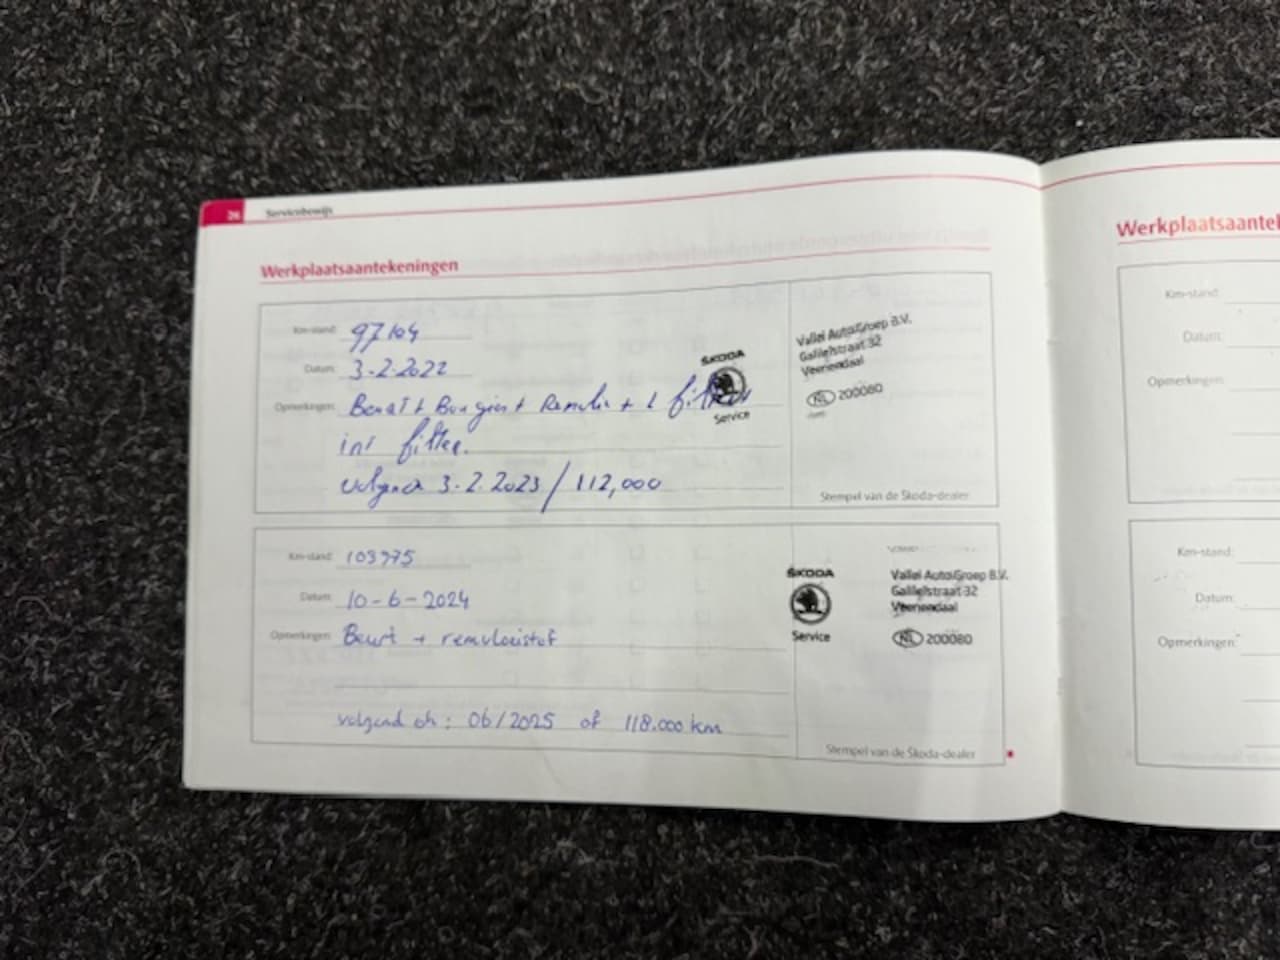 26 Servicebewijs
Werkplaatsaantekeningen
Km-stand: 97104
Datum: 3-2-2022
Opmerkingen: Beurt + Bougies + Remvlo + L filter
int filter.
volgende 3-2-2023 / 112,000
ŠKODA
Service
Vallei AutoGroep B.V.
Galileïstraat 32
Veenendaal
NL 200080
Stempel van de Škoda-dealer
Km-stand: 103975
Datum: 10-6-2024
Opmerkingen: Beurt + remvloeistof
volgend oh: 06/2025 of 118.000 km
ŠKODA
Service
Vallei AutoGroep B.V.
Galileïstraat 32
Veenendaal
NL 200080
Stempel van de Škoda-dealer
Werkplaatsaante
Km-stand:
Datum:
Opmerkingen:
Km-stand:
Datum:
Opmerkingen: